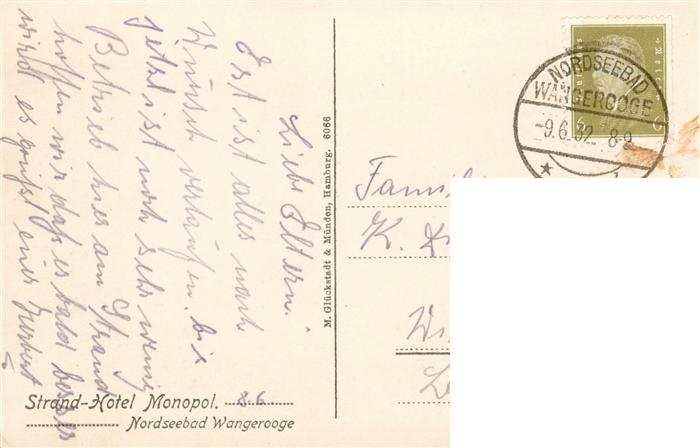 Liebe Eltern.
Es ist alles nach
Wunsch verlaufen. bis
jetzt ist noch sehr wenig
Betrieb hier am Strand
hoffen wir daß es bald besser
wird es grüßt euer Herbert
Strand-Hotel Monopol. 26
Nordseebad Wangerooge
M. Glückstadt & Münden, Hamburg. 6066
NORDSEEBAD
WANGEROOGE
-9.6.32 8-9
6 6
Famil
K.